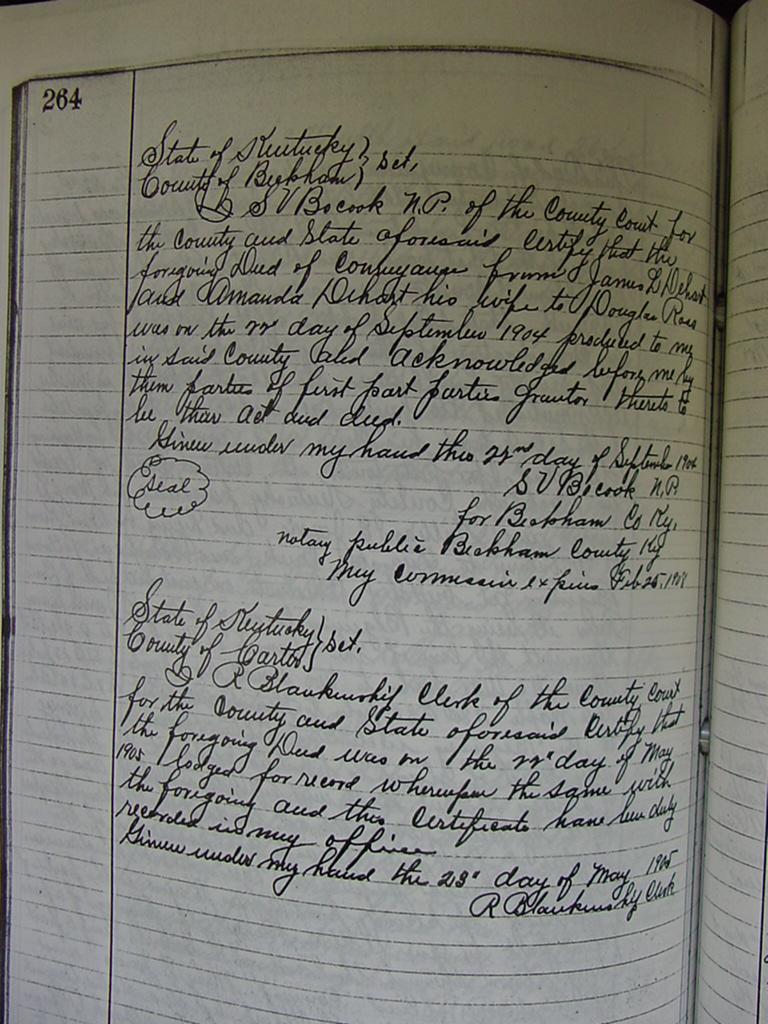 264
State of Kentucky }
County of Beckham } Sct,
I S V Bocook N.P. of the County Court for
the County and State aforesaid Certify that the
foregoing Deed of Conveyance from James L Dehart
and Amanda Dehart his wife to Douglas Ross
was on the 22" day of September 1904 produced to me
in said County and acknowledged before me by
them parties of first part parties grantor thereto to
be thar act and deed.
Given under my hand this 22nd day of September 1904
Seal
S V Bocook N.P.
for Beckham Co Ky.
notary public Beckham County Ky
My Commission expires Feb 25, 1908
State of Kentucky }
County of Carter } Sct.
I R Blankenship Clerk of the County Court
for the County and State aforesaid Certify that
the foregoing Deed was on the 22" day of May
1905 lodged for record whereupon the same with
the foregoing and this Certificate have been duly
recorded in my office
Given under my hand the 23" day of May 1905
R Blankenship Clerk